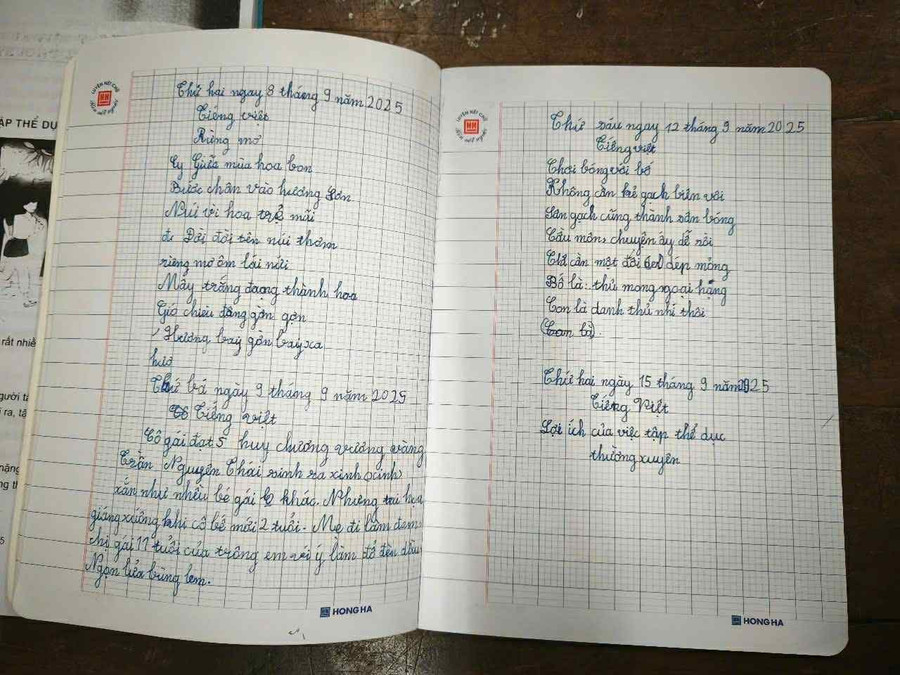 ẬP THỂ DỤ
rất nhiề
LUYỆN NÉT CHỮ
RÈN NẾT NGƯỜI
Thứ hai ngay 8 tháng 9 năm 2025
Tiếng việt
Rừng mơ
Giữa mùa hoa bon
Bước chân vào hương Sơn
Núi vì hoa trẻ mãi
Đời đời tên núi thơm
riêng mơ ôm lái núi
Mây trắng đaong thành hoa
Gió chiều đông gờn gợn
Hương bay gơn bay xa
hươ
Thứ ba ngày 9 tháng 9 năm 2025
Tiếng việt
Cô gái đạt 5 huy chương vương vàng
Trần Nguyên Thái sinh ra xinh xinh
xắn như nhiều bé gái khác. Nhưng tai họa
giáng xuống khi cô bé mới 2 tuổi. Mẹ đi làm đem
chị gái 11 tuổi của trông em vơi ý làm đổ đèn dầu
Ngọn lửa bùng lem.
HONG HA
LUYỆN NÉT CHỮ
RÈN NẾT NGƯỜI
Thứ sáu ngay 12 tháng 9 năm 2025
Tiếng việt
Chơi bóng với bố
Không cần kẻ gạch biên vôi
Sân gạch cũng thành sân bóng
Cầu môn, chuyện ấy dễ rồi
Chỉ cần một đôi dép mỏng
Bố là thủ mong ngoại hạng
Con là danh thủ nhí thôi
(Con là)
Thứ hai ngày 15 tháng 9 năm 2025
Tiếng Việt
Lợi ích của việc tập thể dục
thường xuyên
HONG HA